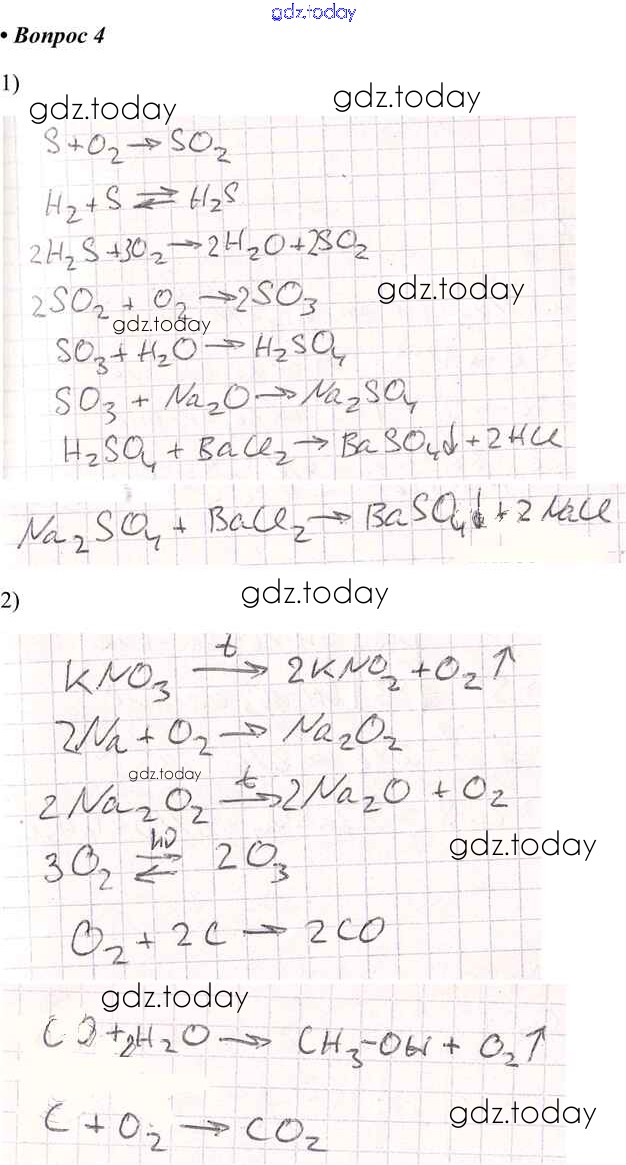 gdz.today
• Вопрос 4
1)
gdz.today gdz.today
S + O₂ → SO₂
H₂ + S ⇌ H₂S
2H₂S + 3O₂ → 2H₂O + 2SO₂
gdz.today
2SO₂ + O₂ → 2SO₃
gdz.today
SO₃ + H₂O → H₂SO₄
SO₃ + Na₂O → Na₂SO₄
H₂SO₄ + BaCl₂ → BaSO₄↓ + 2HCl
Na₂SO₄ + BaCl₂ → BaSO₄↓ + 2NaCl
gdz.today
2)
KNO₃ →ᵗ 2KNO₂ + O₂↑
2Na + O₂ → Na₂O₂
gdz.today
2Na₂O₂ →ᵗ 2Na₂O + O₂
gdz.today
3O₂ ⇌ 2O₃
O₂ + 2C → 2CO
gdz.today
CO + 2H₂O → CH₃-OH + O₂↑
gdz.today
C + O₂ → CO₂